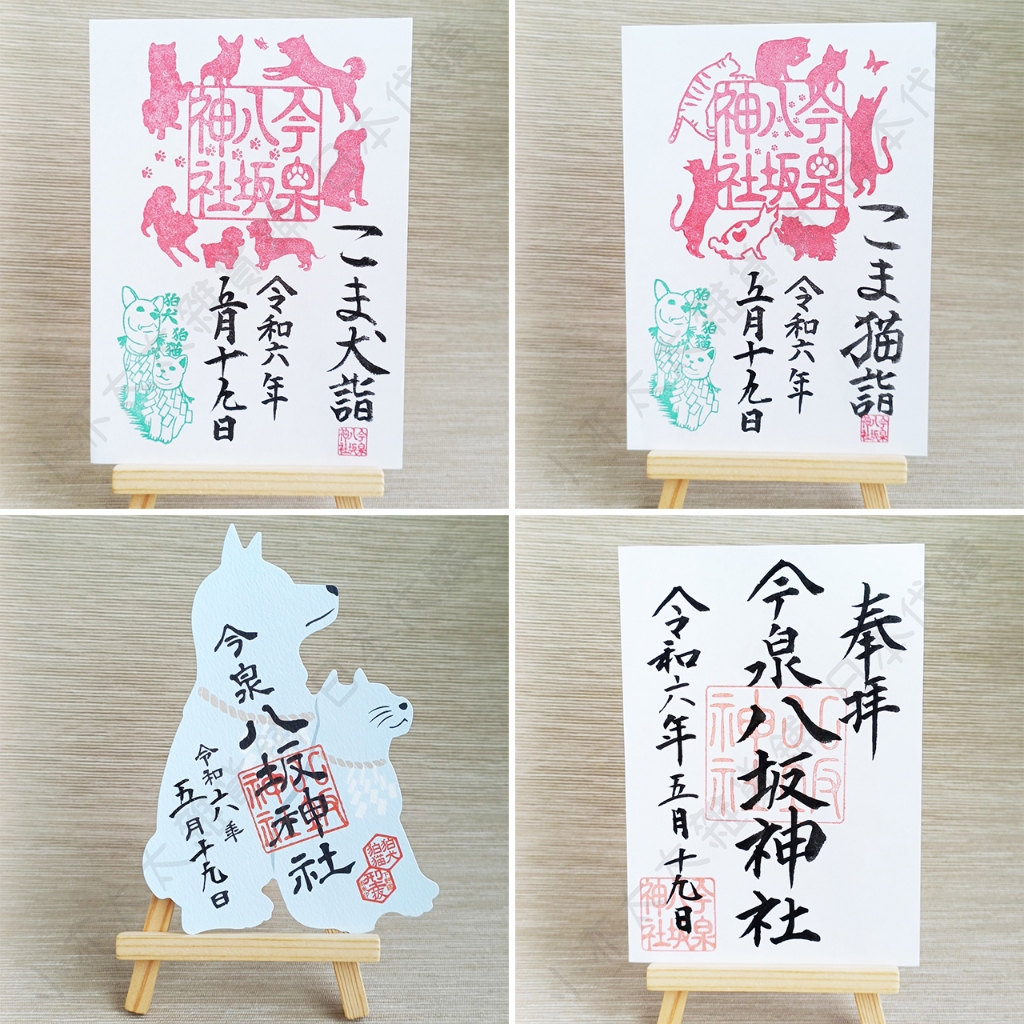 今泉
八坂
神社
こま犬詣
令和六年
五月十九日
狛犬
狛猫
今泉
八坂
神社
今泉
八坂
神社
こま猫詣
令和六年
五月十九日
狛犬
狛猫
今泉
八坂
神社
今泉八坂神社
令和六年
五月十九日
八坂
神社
狛犬
狛猫
奉拝
今泉八坂神社
令和六年五月十九日
八坂
神社
今泉
八坂
神社